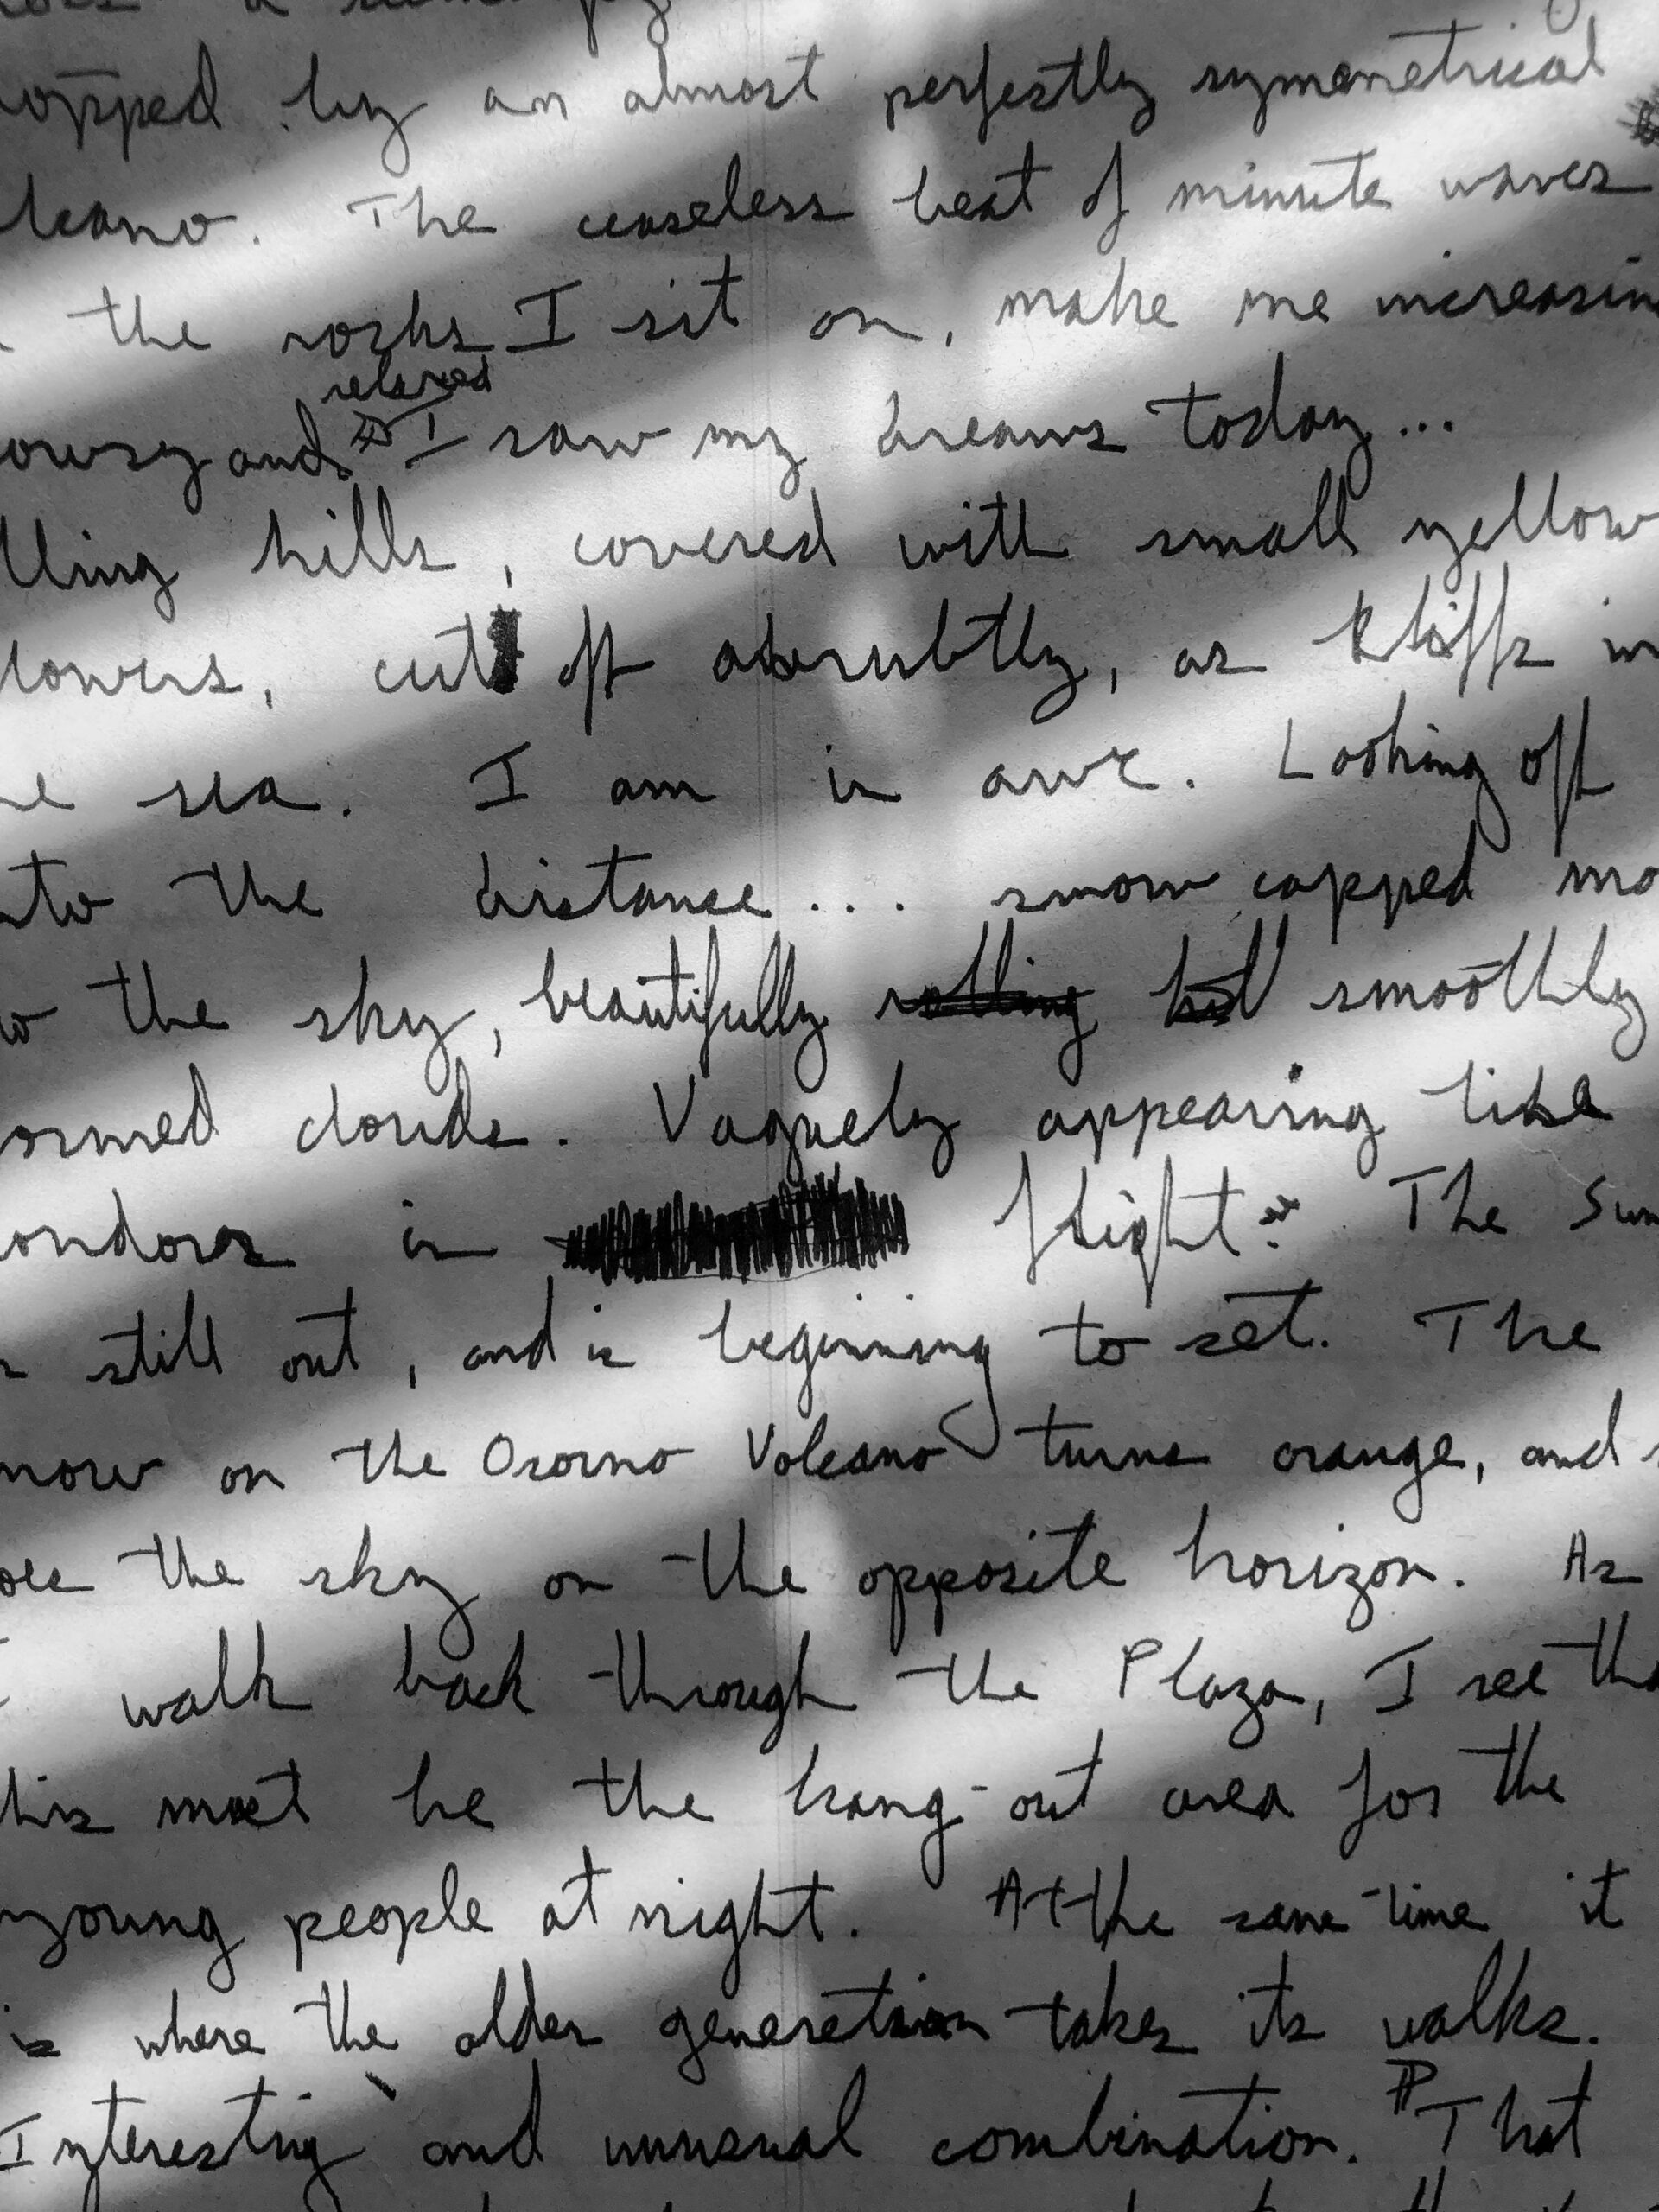 opped by an almost perfectly symmetrical
lcano. The ceaseless beat of minute waves
the rocks I sit on, make me increasin
relaxed
owsy and I saw my dreams today...
lling hills, covered with small yellow
lowers, cut off abrubtly, as kliffs in
he sea. I am in awe. Looking off
nto the distance... snow capped mo
o the sky, beautifully rolling hil smoothly
ormed clouds. Vaguely appearing like
ondores in flight. The Sun
s still out, and is beginning to set. The
now on the Osorno Volcano turns orange, and s
oes the sky on the opposite horizon. As
I walk back through the Plaza, I see tha
his must be the hang-out area for the
young people at night. At the same time it
is where the older generation takes its walks.
Interesting and unusual combination. That